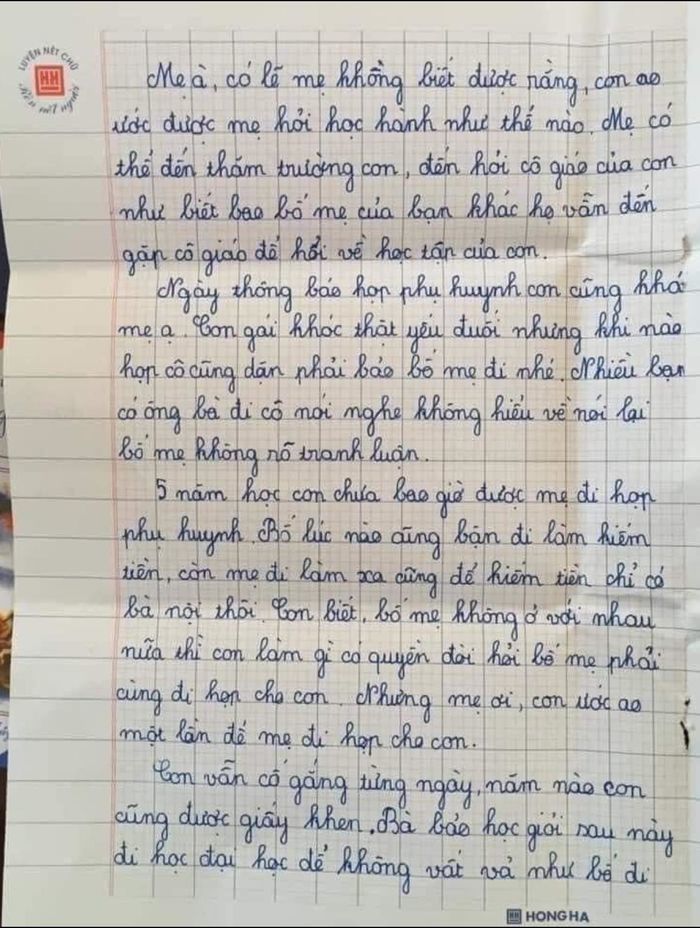 LUYỆN NÉT CHỮ
HH
Rèn nết người
Mẹ à, có lẽ mẹ không biết được rằng, con ao
ước được mẹ hỏi học hành như thế nào. Mẹ có
thể đến thăm trường con, đến hỏi cô giáo của con
như biết bao bố mẹ của bạn khác họ vẫn đến
gặp cô giáo để hỏi về học tập của con.
Ngày thông báo họp phụ huynh con cũng khó
mẹ ạ. Con gái khóc thật yếu đuối nhưng khi nào
họp cô cũng dặn phải bảo bố mẹ đi nhé. Nhiều bạn
có ông bà đi cô nói nghe không hiểu về nói lại
bố mẹ không rõ tranh luận.
5 năm học con chưa bao giờ được mẹ đi họp
phụ huynh. Bố lúc nào cũng bận đi làm kiếm
tiền, còn mẹ đi làm xa cũng để kiếm tiền chỉ có
bà nội thôi. Con biết, bố mẹ không ở với nhau
nữa thì con làm gì có quyền đòi hỏi bố mẹ phải
cùng đi họp cho con. Nhưng mẹ ơi, con ước ao
một lần để mẹ đi họp cho con.
Con vẫn cố gắng từng ngày, năm nào con
cũng được giấy khen. Bà bảo học giỏi sau này
đi học đại học để không vất vả như bố đi
HH HONG HA